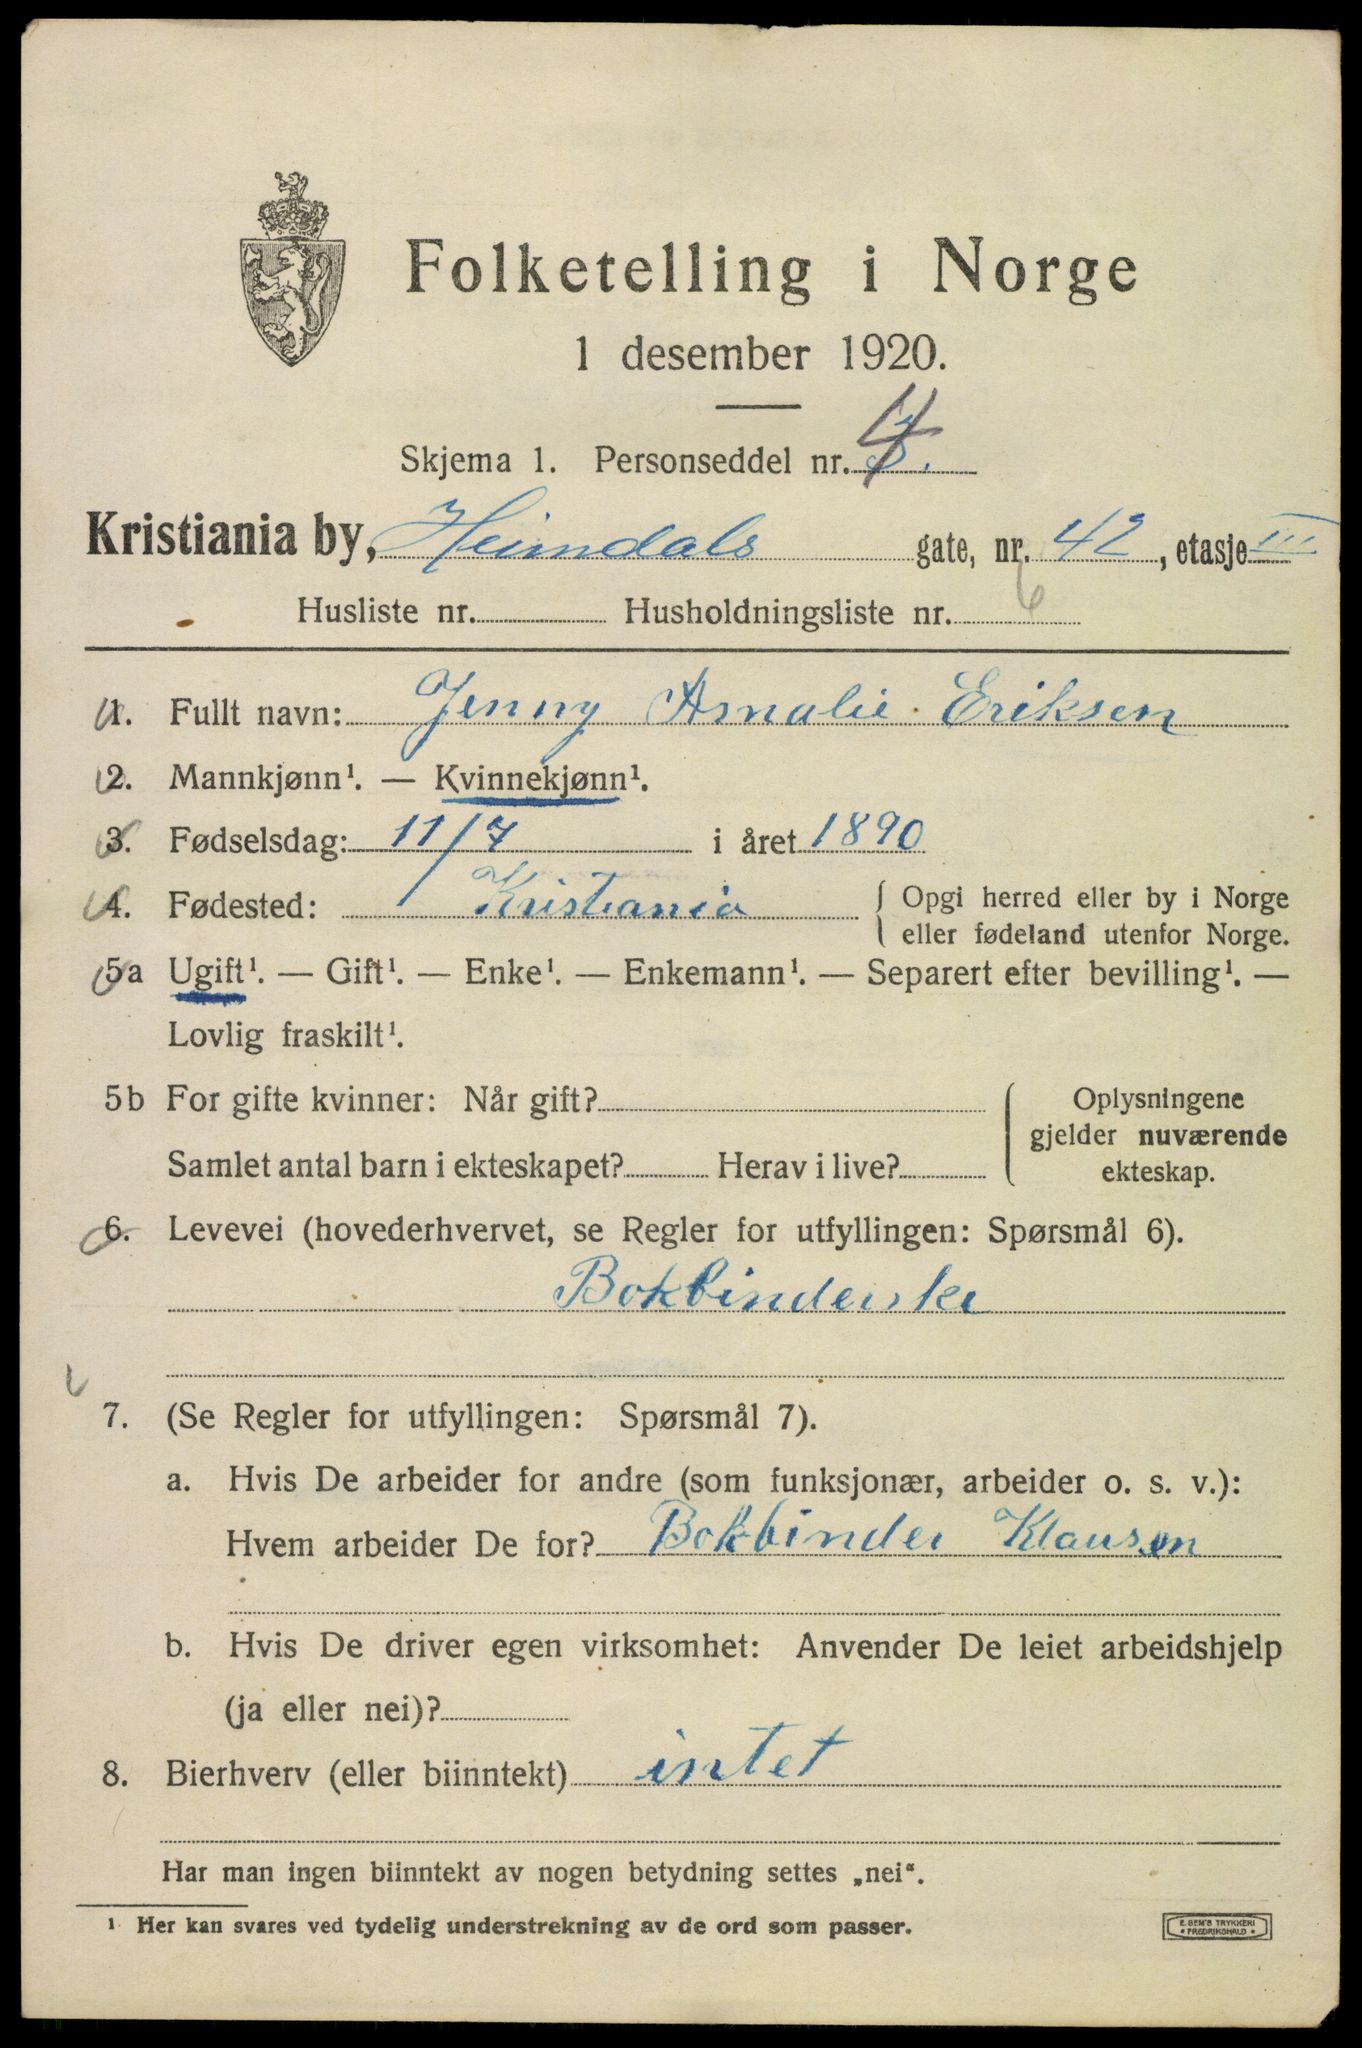 Folketelling i Norge
1 desember 1920.
Skjema 1. Personseddel nr. 4
Kristiania by, Heimdals gate, nr. 42, etasje III
Husliste nr. Husholdningsliste nr. 6
1. Fullt navn: Jenny Amalie Eriksen
2. Mannkjønn¹. — Kvinnekjønn¹.
3. Fødselsdag: 11/7 i året 1890
4. Fødested: Kristiania { Opgi herred eller by i Norge
eller fødeland utenfor Norge.
5a Ugift¹. — Gift¹. — Enke¹. — Enkemann¹. — Separert efter bevilling¹. —
Lovlig fraskilt¹.
5b For gifte kvinner: Når gift? Oplysningene
gjelder nuværende
Samlet antal barn i ekteskapet? Herav i live? ekteskap.
6. Levevei (hovederhvervet, se Regler for utfyllingen: Spørsmål 6).
Bokbinderske
7. (Se Regler for utfyllingen: Spørsmål 7).
a. Hvis De arbeider for andre (som funksjonær, arbeider o. s. v.):
Hvem arbeider De for? Bokbinder Klausen
b. Hvis De driver egen virksomhet: Anvender De leiet arbeidshjelp
(ja eller nei)?
8. Bierhverv (eller biinntekt) intet
Har man ingen biinntekt av nogen betydning settes „nei“.
1 Her kan svares ved tydelig understrekning av de ord som passer.
E. SEM'S TRYKKERI
FREDRIKSHALD